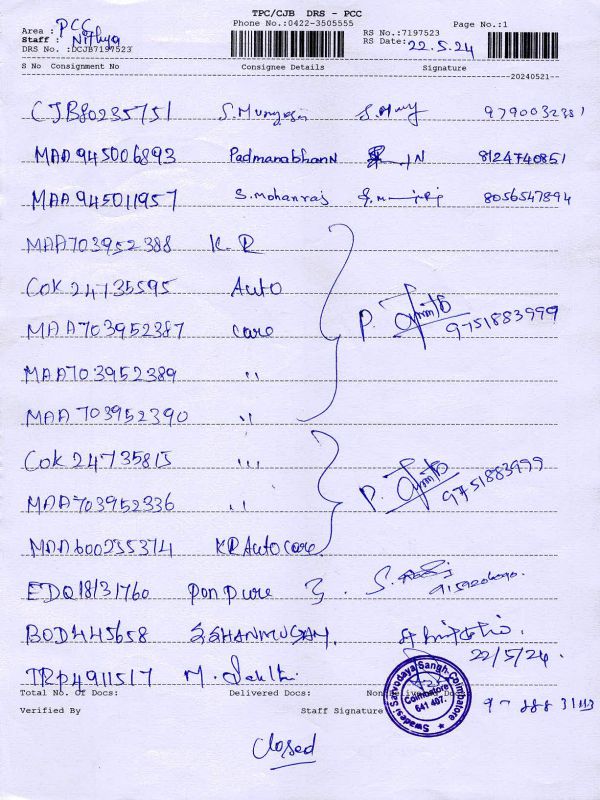 TPC/CJB DRS - PCC
Phone No.:0422-3505555
Page No.:1
Area : PCC
Staff : Nithya
DRS No. :DCJB7197523
RS No.:7197523
RS Date: 22.5.24
S No Consignment No Consignee Details Signature
20240521
CJB80235751 S. Murugesan 9790032381
MAA945006893 Padmanabhan N 8124740851
MAA945011957 S. Mohanraj 8056547894
MAA703952388 K R
COK 24735595 Auto
MAA703952387 Care P. 9751883999
MAA703952389 "
MAA703952390 "
COK 24735815 "
MAA703952336 " P. 9751883999
MAA600255374 KR Auto care
EDQ18131760 Ponpure S.
BOD445658 S SHANMUGAM.
22/5/24.
TRP4911517 M.
Total No. Of Docs: Delivered Docs: Non Delivered Docs:
Verified By Staff Signature
Swadesi Sarvodaya Sangh, Coimbatore
Coimbatore
641 407.
Closed